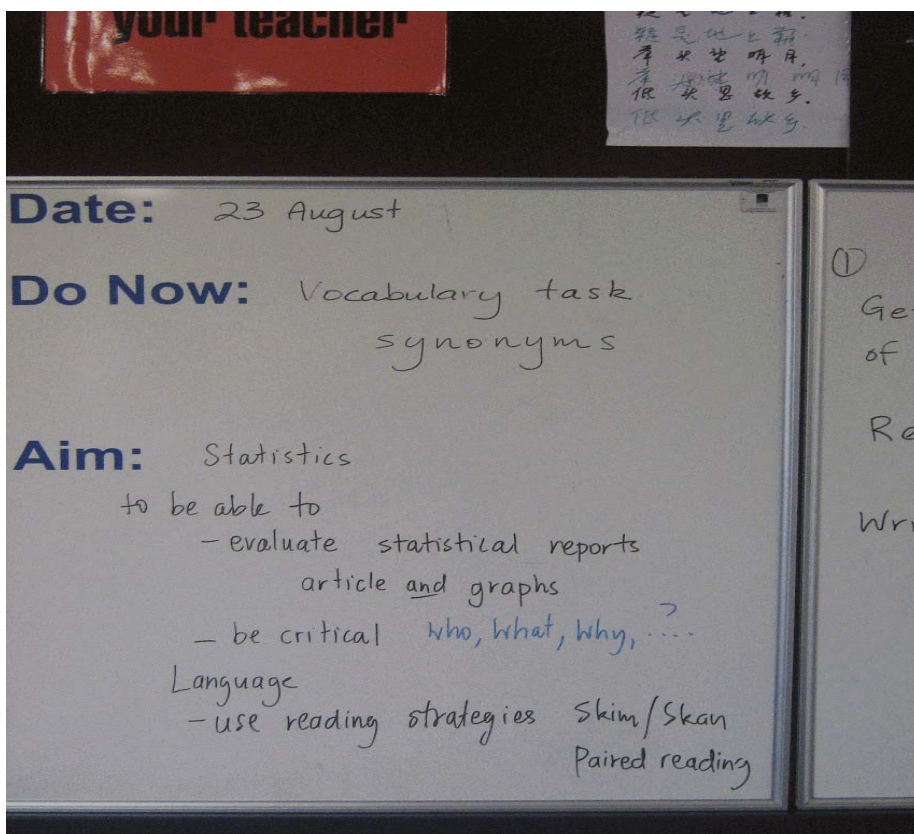 your teacher
疑是地上霜.
举头望明月,
低头思故乡.
低头思故乡
Date: 23 August
Do Now: Vocabulary task
synonyms
Aim: Statistics
to be able to
- evaluate statistical reports
article and graphs
- be critical who, what, why, ....?
Language
- use reading strategies Skim/Skan
Paired reading
①
Ge
of
Re
Wri